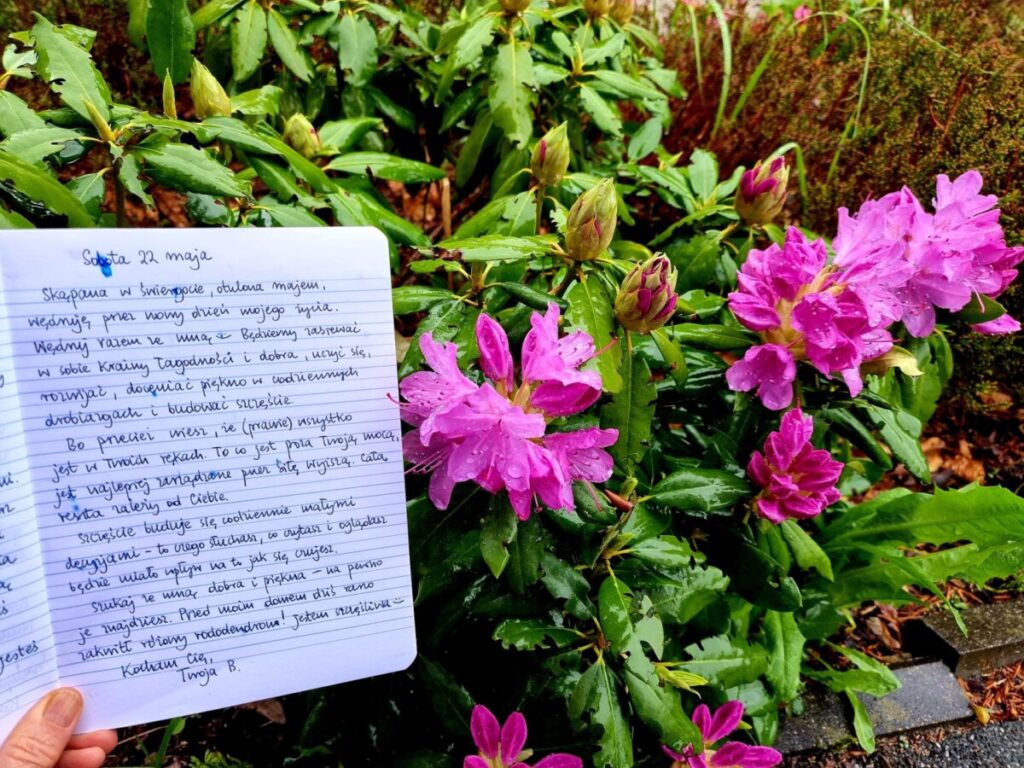 Sobota 22 maja
Skąpana w świergocie, otulona majem,
wędruję przez nowy dzień mojego życia.
Wędruj razem ze mną :) Będziemy zasiewać
w sobie Krainy Łagodności i dobra, uczyć się,
rozwijać, doceniać piękno w codziennych
drobiazgach i budować szczęście.
Bo przecież wiesz, że (prawie) wszystko
jest w Twoich rękach. To co jest poza Twoją mocą,
jest najlepiej zarządzane przez Siłę Wyższą. Cała
reszta zależy od Ciebie.
Szczęście buduje się codziennie małymi
decyzjami - to czego słuchasz, co czytasz i oglądasz
będzie miało wpływ na to jak się czujesz.
Szukaj ze mną dobra i piękna - na pewno
je znajdziesz. Przed moim domem dziś rano
zakwitł różowy rododendron! Jestem szczęśliwa :)
Kocham Cię,
Twoja B.
jesteś